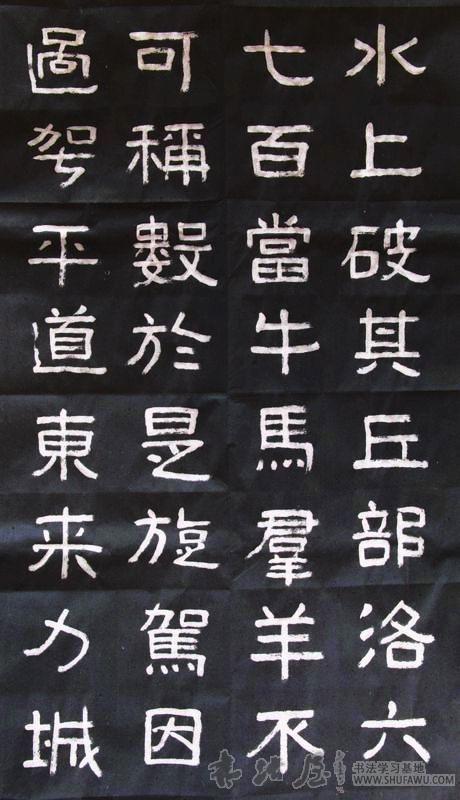 水上破其丘部洛六
七百當牛馬羣羊不
可稱數於是旋駕因
過平道東来力城
书法屋
书法学习基地
WWW.SHUFAWU.COM